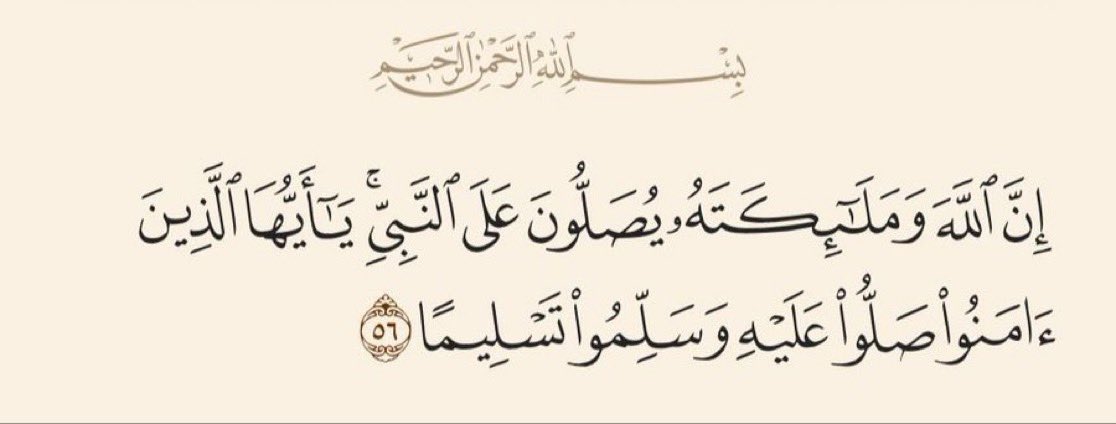 بِسْمِ ٱللَّهِ ٱلرَّحْمَٰنِ ٱلرَّحِيمِ
إِنَّ ٱللَّهَ وَمَلَـٰٓئِكَتَهُۥ يُصَلُّونَ عَلَى ٱلنَّبِىِّ ۚ يَـٰٓأَيُّهَا ٱلَّذِينَ
ءَامَنُوا۟ صَلُّوا۟ عَلَيْهِ وَسَلِّمُوا۟ تَسْلِيمًا ٥٦